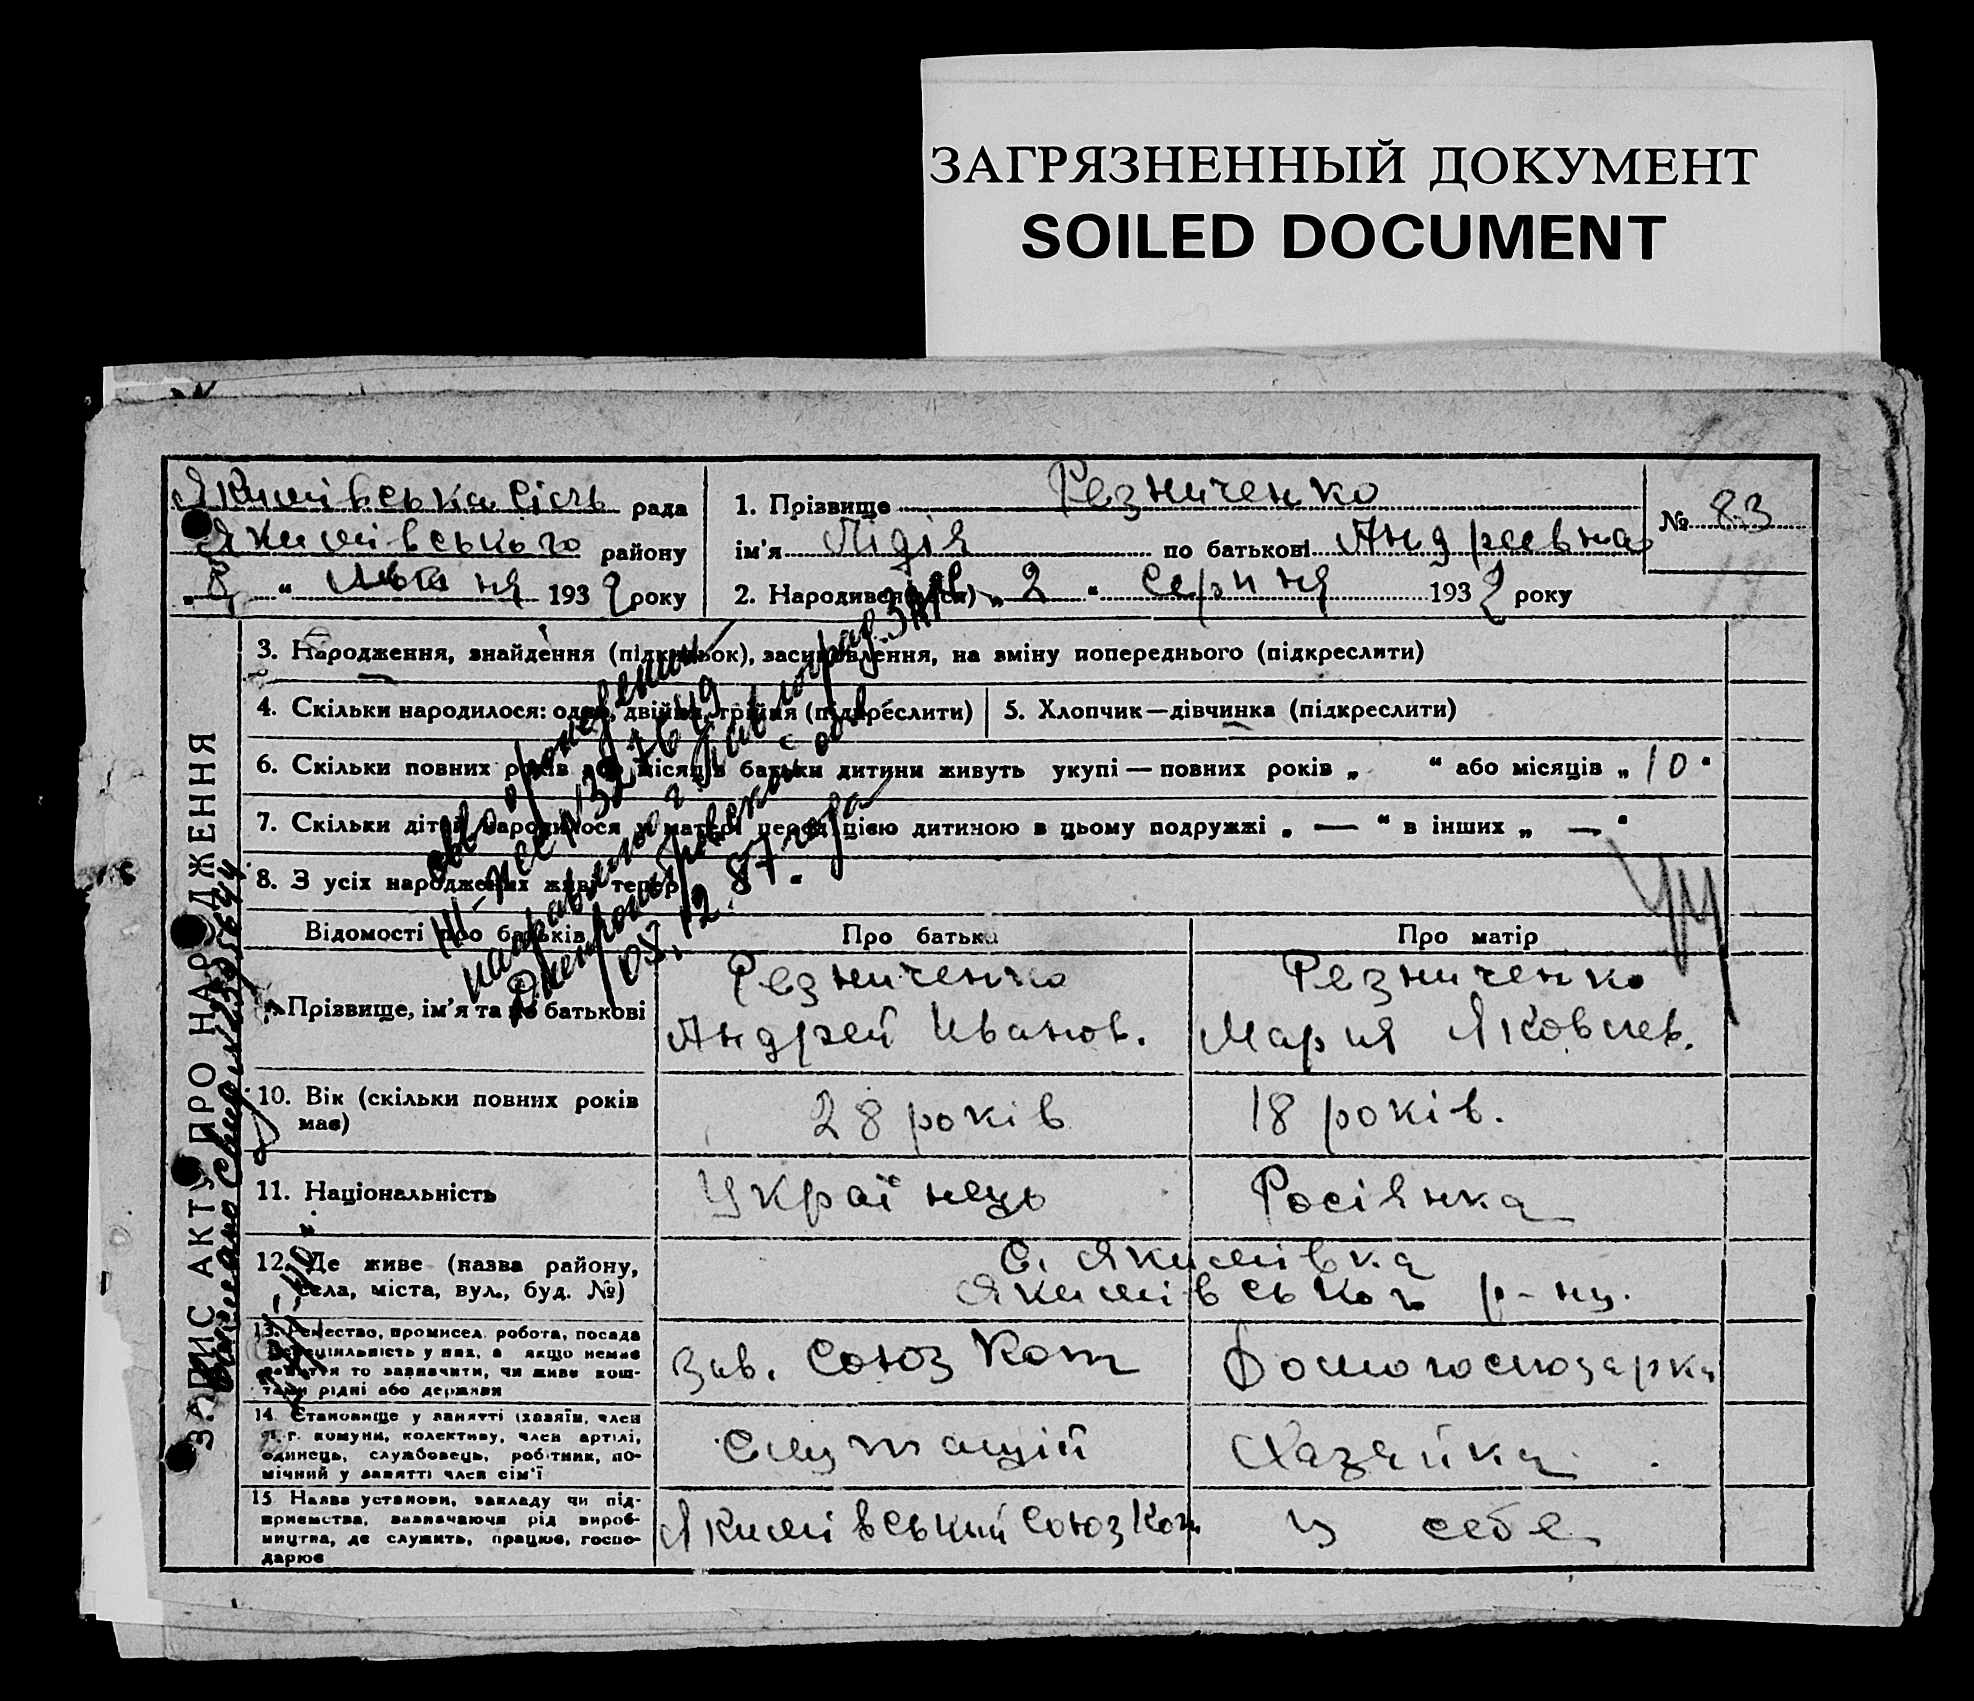 ЗАГРЯЗНЕННЫЙ ДОКУМЕНТ
SOILED DOCUMENT
Якимівська сіль рада
Якимівського району
193 2 року
1. Прізвище Резниченко
ім'я Лідія по батькові Андреевна
2. Народився(лася) „ 2 “ Серпня 193 2 року
№ 83
ЗАПИС АКТУ ПРО НАРОДЖЕННЯ
3. Народження, знайдення (підкидьок), засиновлення, на зміну попереднього (підкреслити)
4. Скільки народилося: одно, двійня, трійня (підкреслити)
5. Хлопчик—дівчинка (підкреслити)
6. Скільки повних років або місяців батьки дитини живуть укупі — повних років „ “ або місяців „ 10 “
7. Скільки дітей народилося у матері перед цією дитиною в цьому подружжі „ — “ в інших „ — “
8. З усіх народжених живі тепер
повторное
направлено г. Павлоград
Днепропетровской обл
03.12.87 года
Відомості про батьків
Про батька
Про матір
9. Прізвище, ім'я та по батькові
Резниченко
Андрей Иванов.
Резниченко
Мария Яковлев.
10. Вік (скільки повних років
має)
28 років
18 років.
11. Національність
Українець
Росіянка
12. Де живе (назва району,
села, міста, вул., буд. №)
С. Якимівка
Якимівського р-ну.
13. Ремество, промисел, робота, посада
спеціяльність у них, а якщо немає
заняття то зазначити, чи живе кош-
тами рідні або держави
Зав. Союз Кот
Домогосподарка
14. Становище у занятті (хазяїн, член
с.-г. комуни, колективу, член артілі,
одинець, службовець, робітник, по-
мічний у занятті член сім'ї
Служащій
Хазяйка
15. Назва установи, закладу чи під-
приємства, зазначаючи рід вироб-
ництва, де служить, працює, госпо-
дарює
Якимівський Союз Кот
у себе